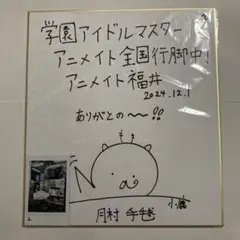 学園アイドルマスター
アニメイト全国行脚中!
アニメイト福井
2024.12.1
ありがとの〜!!
小鹿
月村 手毬